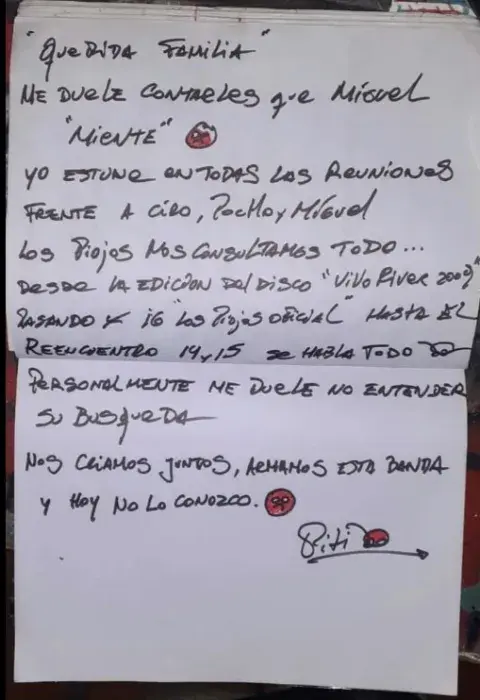 "Querida Familia"
Me duele contarles que Miguel
"Miente"
Yo estuve en todas las reuniones
frente a Ciro, Pocho y Miguel
Los Piojos nos consultamos todo...
desde la edición del disco "Vivo River 2009"
pasando x IG "Los Piojos Oficial" hasta el
reencuentro 14 y 15 se habla todo
Personalmente me duele no entender
su busqueda
Nos criamos juntos, armamos esta banda
y hoy no lo conozco.
Piti